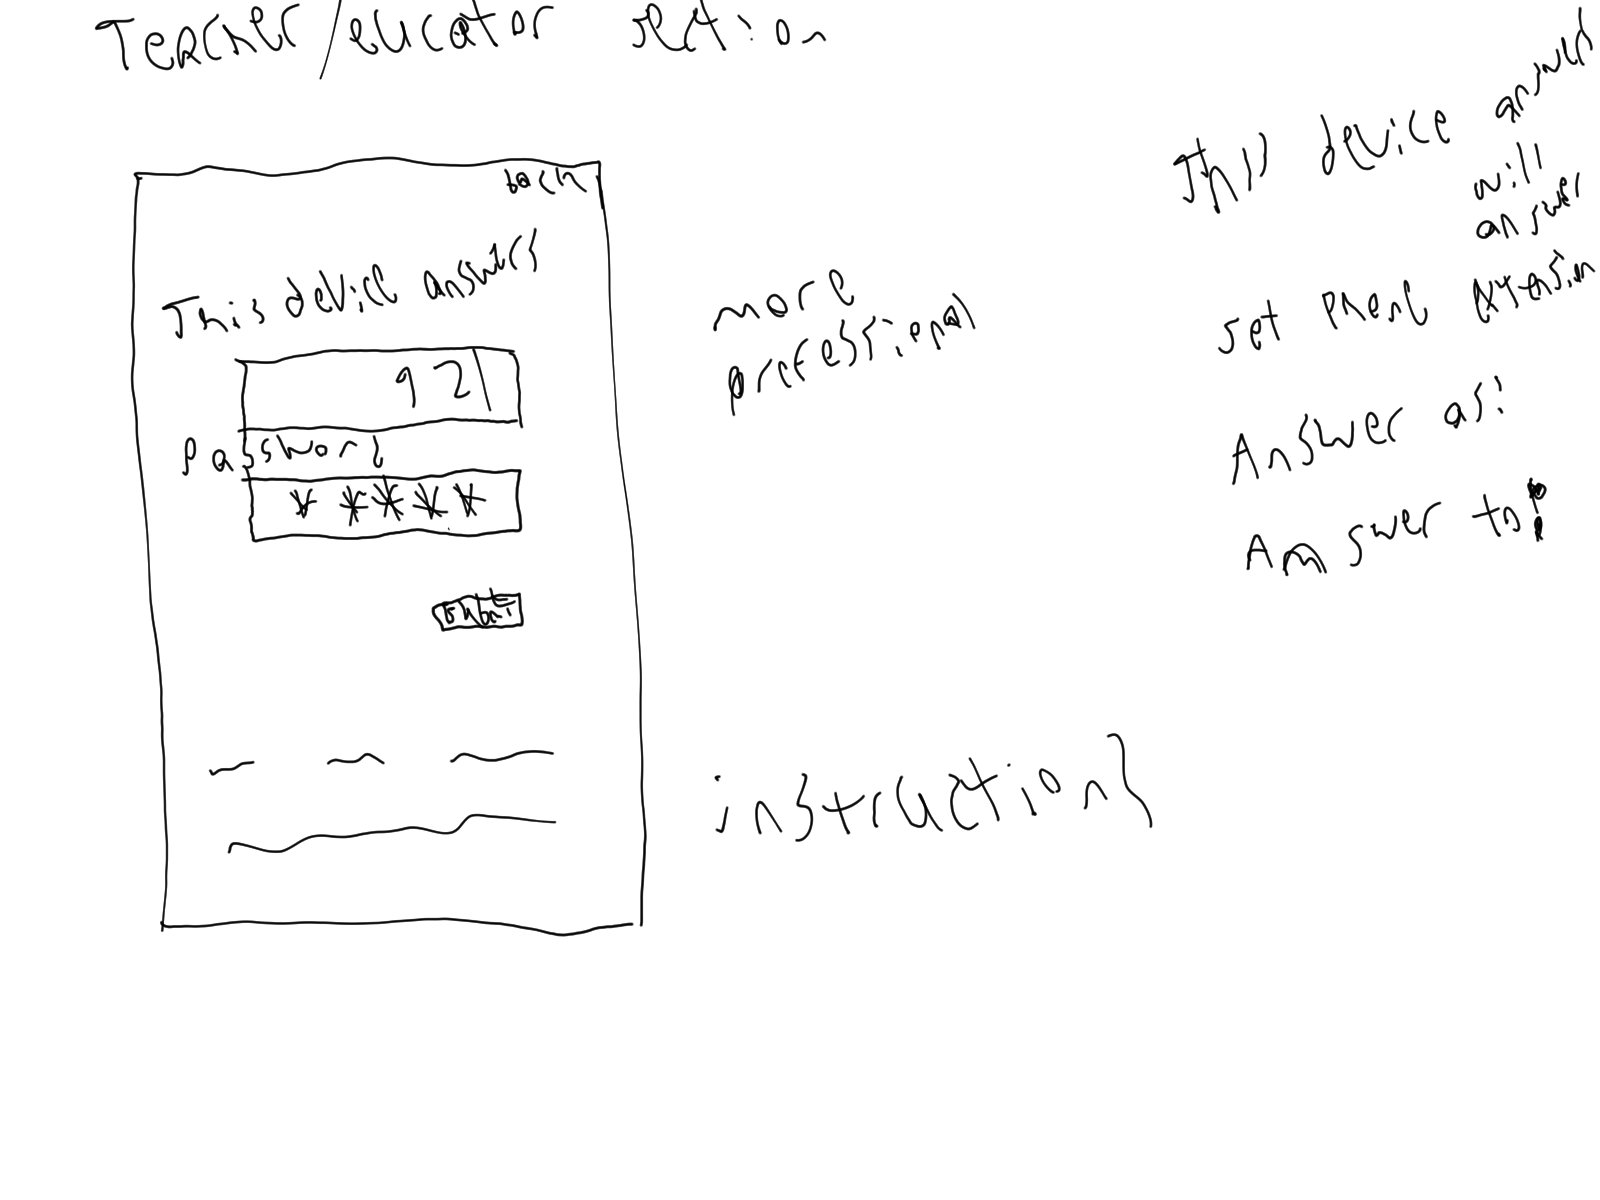 Teacher/eucator section
back
This device answers
921
Password
*****
more
professional
instructions
This device answers
will
answer
set phone extension
Answer as:
Answer to: